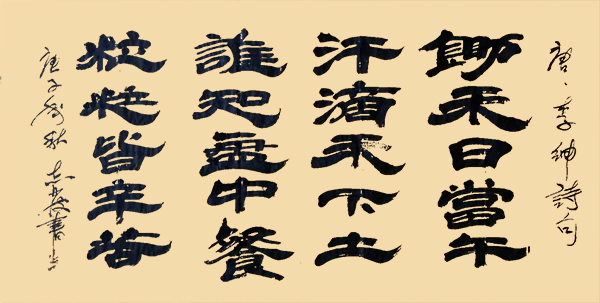 唐、李紳詩句
鋤禾日當午
汗滴禾下土
誰知盤中餐
粒粒皆辛苦
庚子劲秋